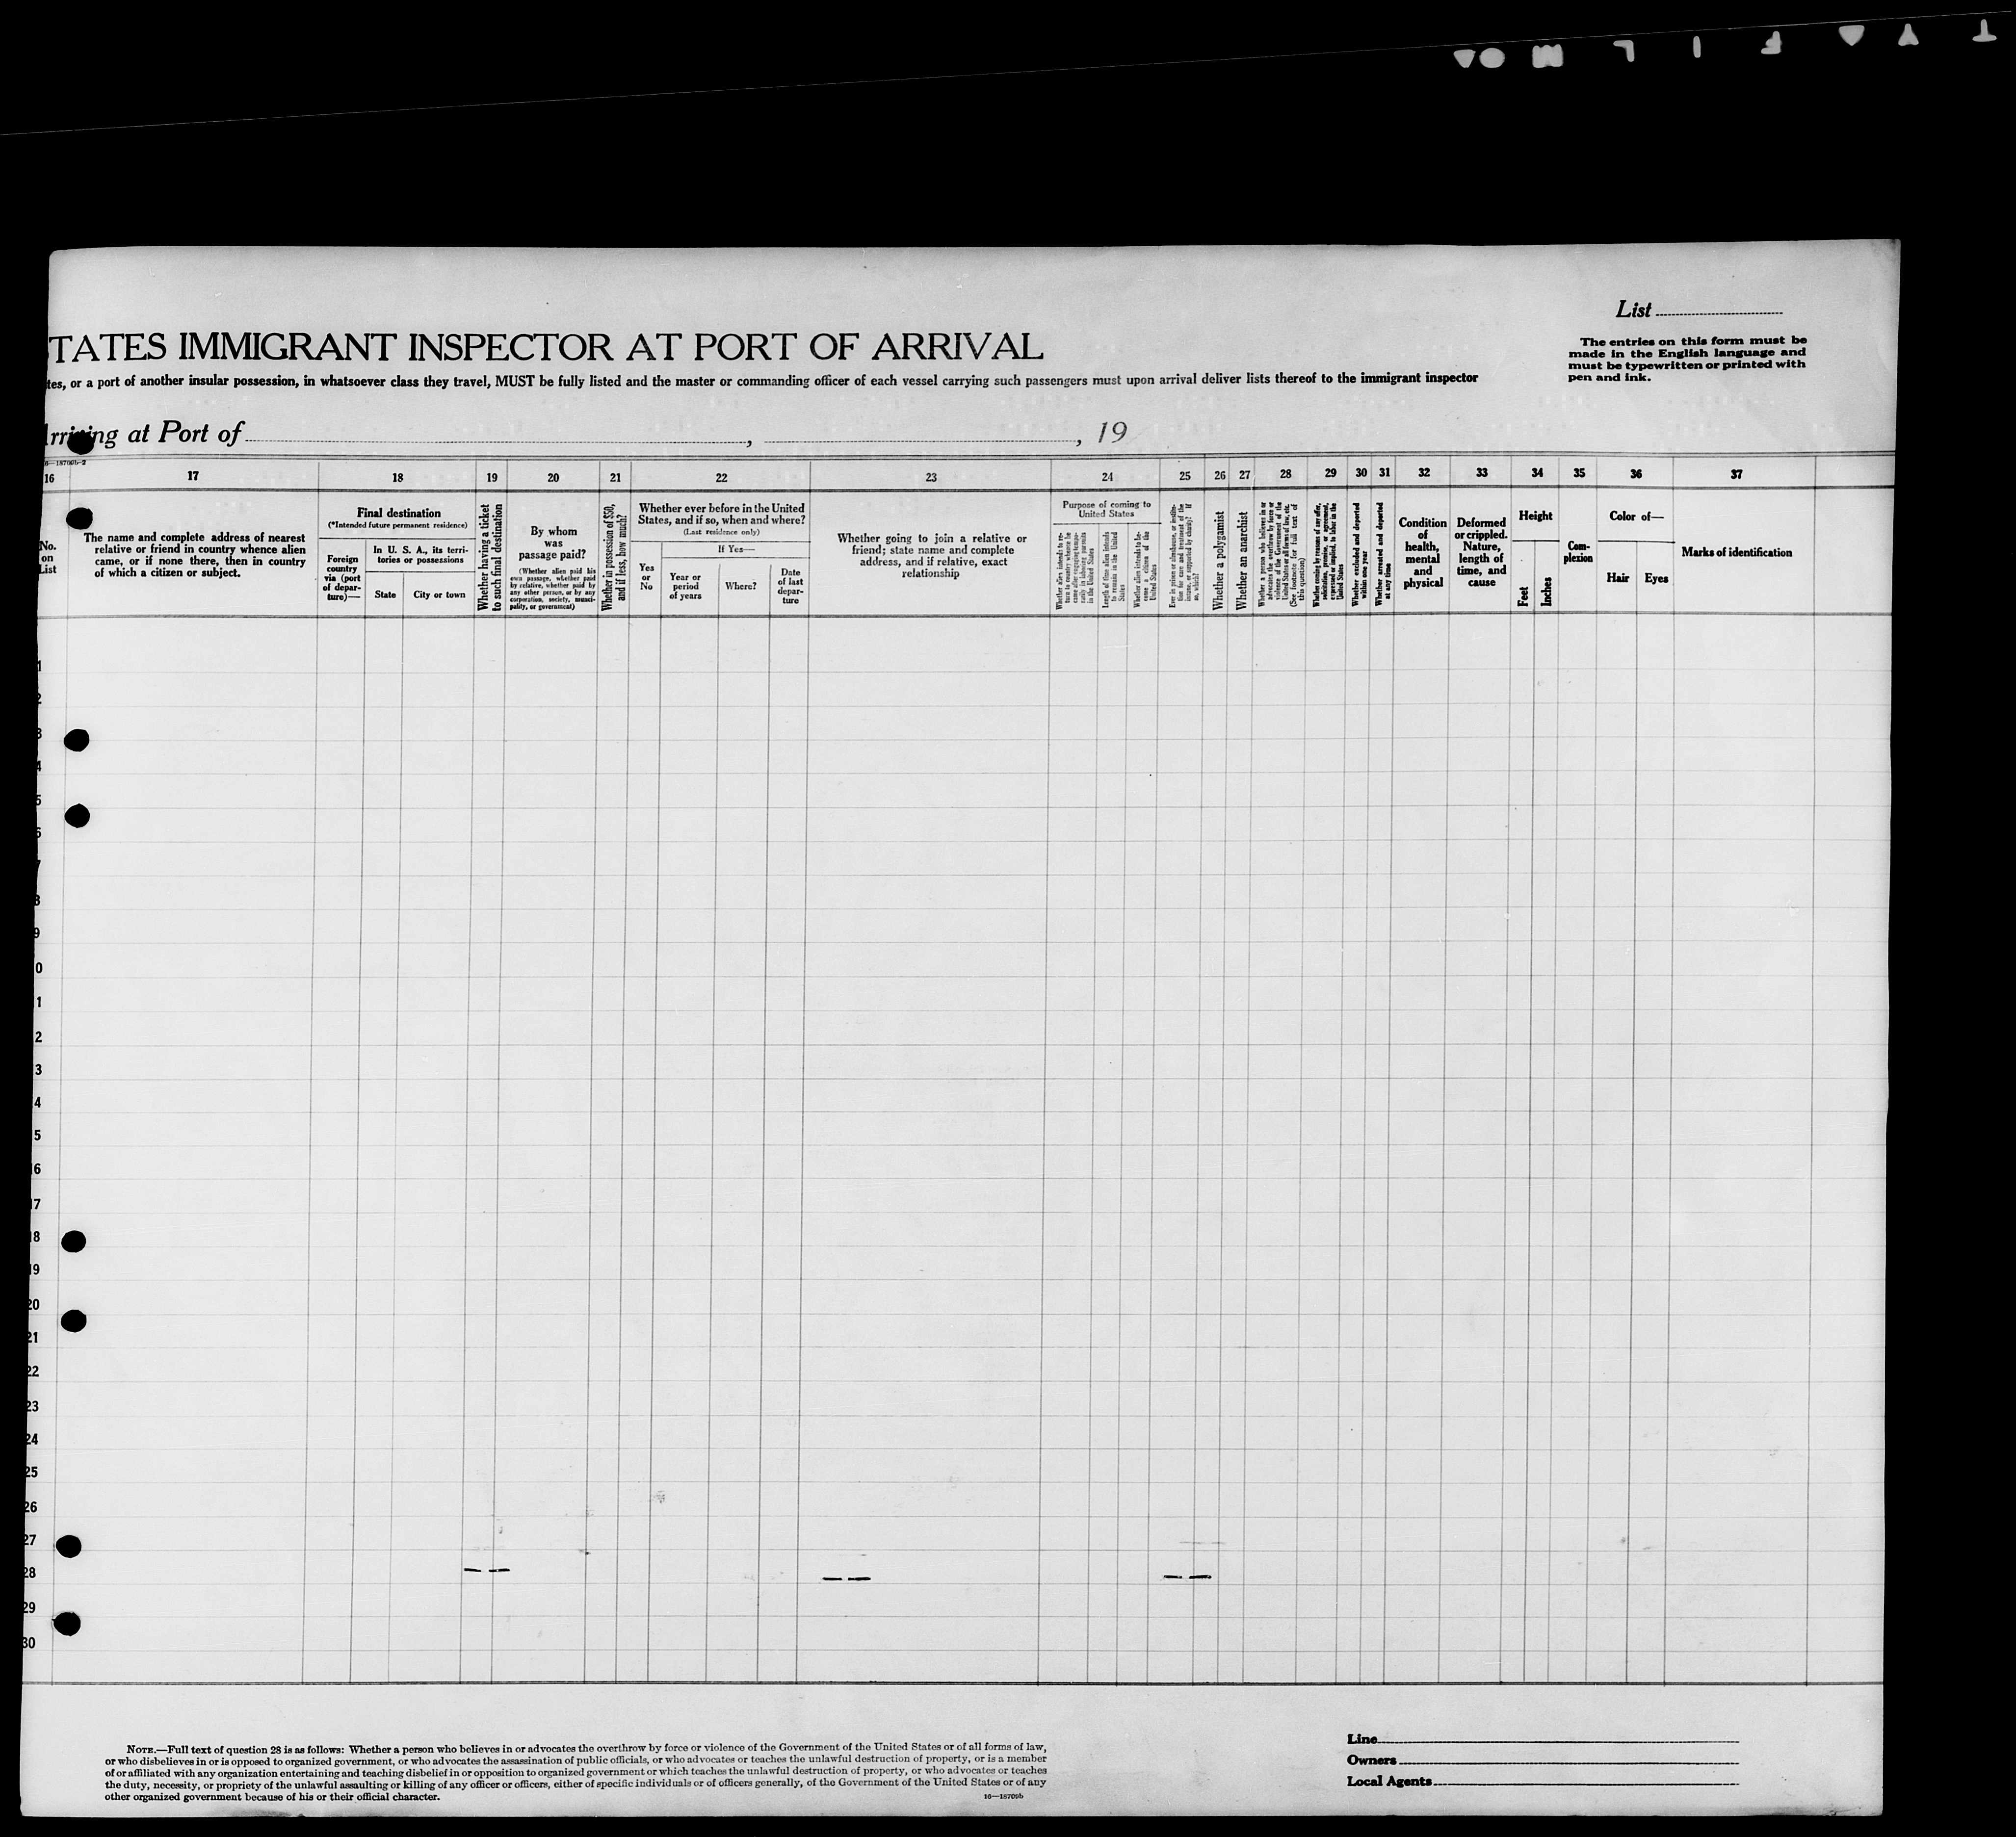 List
TATES IMMIGRANT INSPECTOR AT PORT OF ARRIVAL
The entries on this form must be
made in the English language and
must be typewritten or printed with
pen and ink.
tes, or a port of another insular possession, in whatsoever class they travel, MUST be fully listed and the master or commanding officer of each vessel carrying such passengers must upon arrival deliver lists thereof to the immigrant inspector
at Port of , , 19
16 17 18 19 20 21 22 23 24 25 26 27 28 29 30 31 32 33 34 35 36 37
No.
on
List
The name and complete address of nearest
relative or friend in country whence alien
came, or if none there, then in country
of which a citizen or subject.
Final destination
(*Intended future permanent residence)
Foreign
country
via (port
of depar-
ture)—
In U. S. A., its terri-
tories or possessions
State City or town
Whether having a ticket
to such final destination
By whom
was
passage paid?
(Whether alien paid his
own passage, whether paid
by relative, whether paid by
any other person, or by any
corporation, society, munici-
pality, or government)
Whether in possession of $50,
and if less, how much?
Whether ever before in the United
States, and if so, when and where?
(Last residence only)
Yes
or
No
If Yes—
Year or
period
of years
Where?
Date
of last
depar-
ture
Whether going to join a relative or
friend; state name and complete
address, and if relative, exact
relationship
Purpose of coming to
United States
Whether alien intends to re-
turn to country whence he
came after engaging tempo-
rarily in laboring pursuits
in the United States
Length of time alien intends
to remain in the United
States
Whether alien intends to be-
come a citizen of the
United States
Ever in prison or almshouse, or institu-
tion for care and treatment of the
insane, or supported by charity? If
so, which?
Whether a polygamist
Whether an anarchist
Whether a person who believes in or
advocates the overthrow by force or
violence of the Government of the
United States or all forms of law, etc.
(See footnote for full text of
this question)
Whether coming by reason of any offer,
solicitation, promise, or agreement,
expressed or implied, to labor in the
United States
Whether excluded and deported
within one year
Whether arrested and deported
at any time
Condition
of
health,
mental
and
physical
Deformed
or crippled.
Nature,
length of
time, and
cause
Height
Feet
Inches
Com-
plexion
Color of—
Hair Eyes
Marks of identification
1
2
3
4
5
6
7
8
9
0
1
2
3
4
5
16
17
18
19
20
21
22
23
24
25
26
27
28
29
30
NOTE.—Full text of question 28 is as follows: Whether a person who believes in or advocates the overthrow by force or violence of the Government of the United States or of all forms of law,
or who disbelieves in or is opposed to organized government, or who advocates the assassination of public officials, or who advocates or teaches the unlawful destruction of property, or is a member
of or affiliated with any organization entertaining and teaching disbelief in or opposition to organized government or which teaches the unlawful destruction of property, or who advocates or teaches
the duty, necessity, or propriety of the unlawful assaulting or killing of any officer or officers, either of specific individuals or of officers generally, of the Government of the United States or of any
other organized government because of his or their official character.
16—18709b
Line
Owners
Local Agents